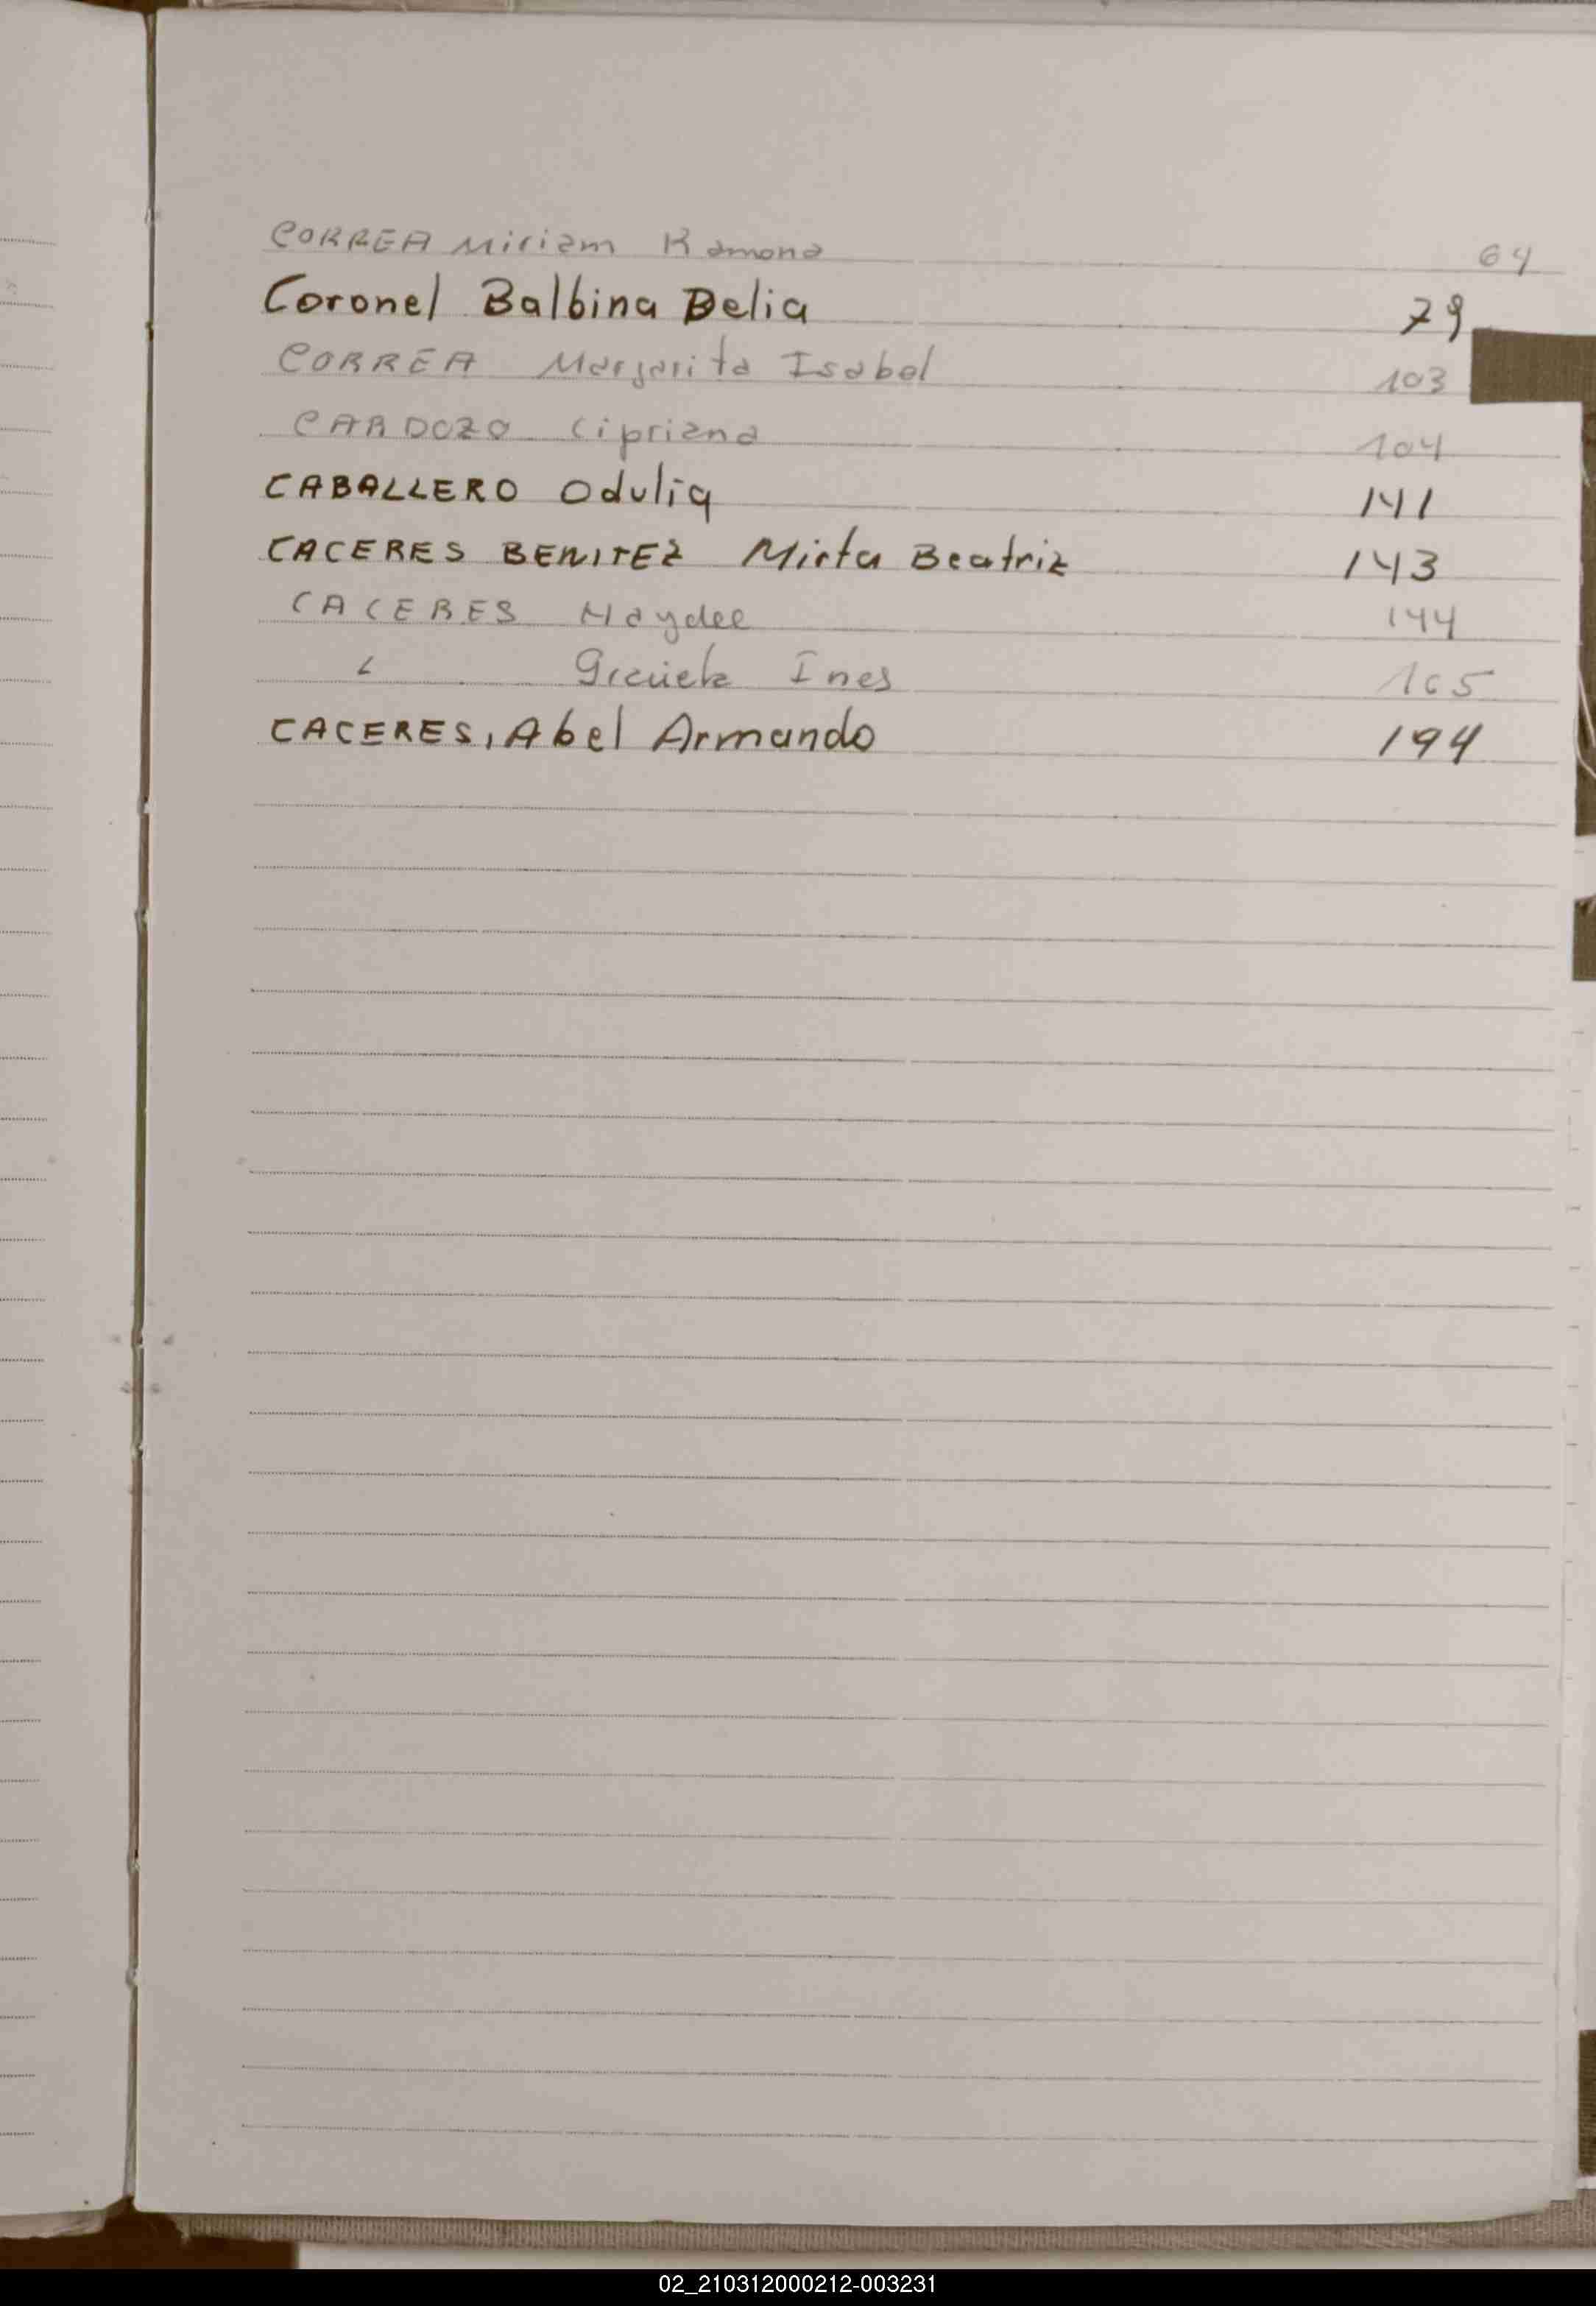 CORREA Miriam Ramona 64
Coronel Balbina Delia 79
CORREA Margarita Isabel 103
CARDOZO Cipriana 104
CABALLERO Odulia 141
CACERES BENITEZ Mirta Beatriz 143
CACERES Haydee 144
" Graciela Ines 165
CACERES, Abel Armando 194
02_210312000212-003231